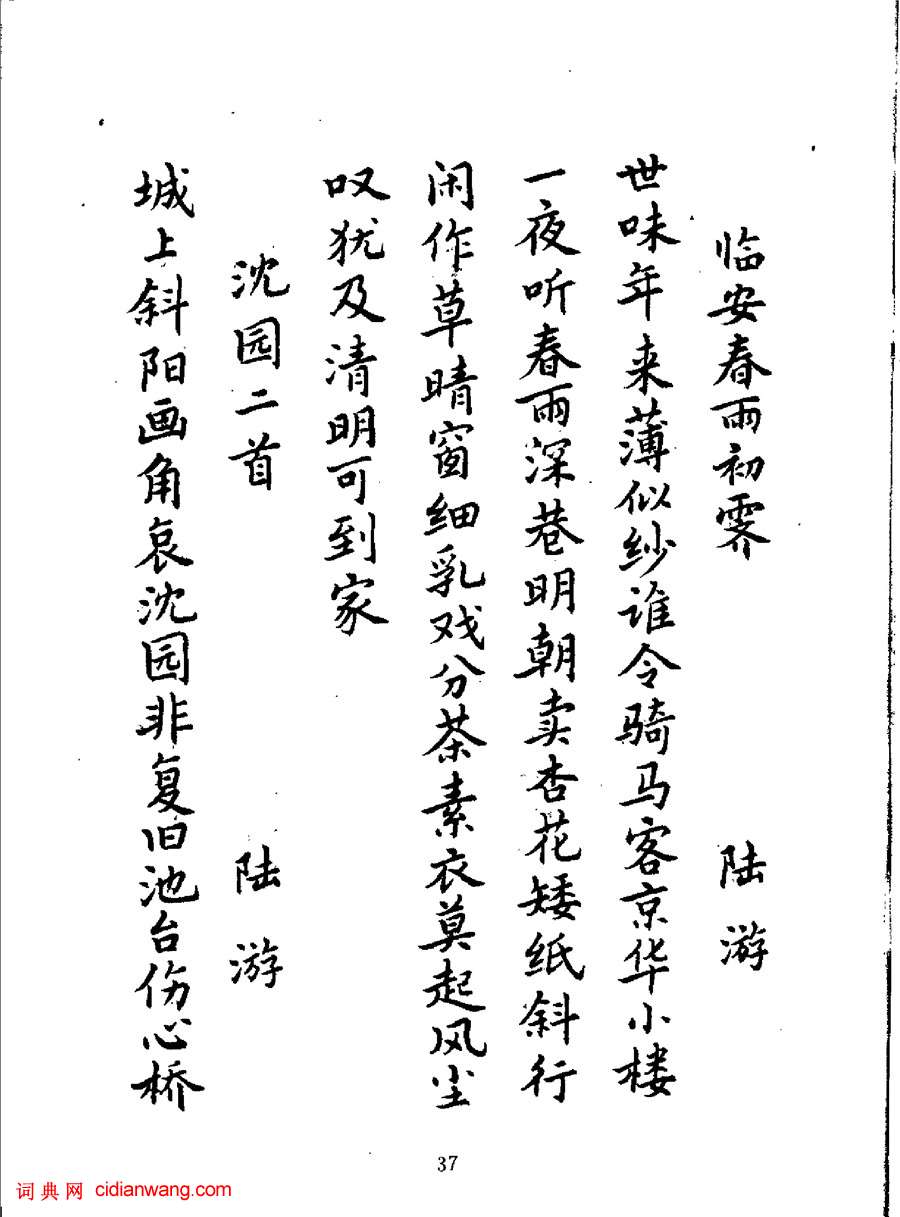 临安春雨初霁 陆游
世味年来薄似纱谁令骑马客京华小楼
一夜听春雨深巷明朝卖杏花矮纸斜行
闲作草晴窗细乳戏分茶素衣莫起风尘
叹犹及清明可到家
沈园二首 陆游
城上斜阳画角哀沈园非复旧池台伤心桥
37
词典网 cidianwang.com